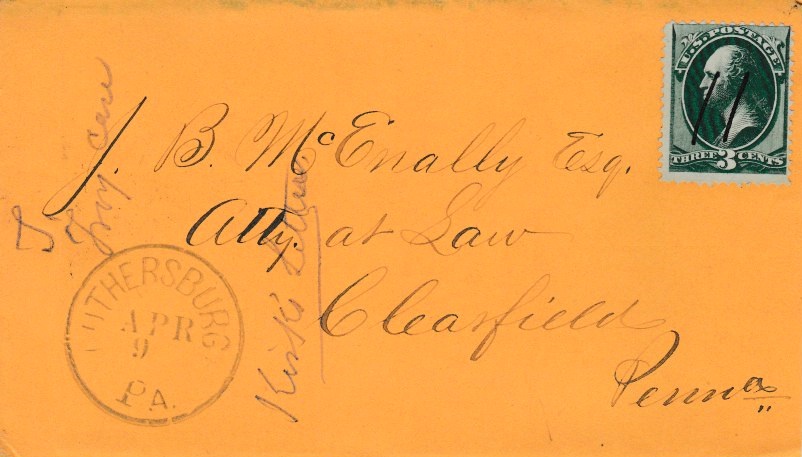 U.S. POSTAGE
THREE 3 CENTS
J. B. McEnally Esq.
Atty. at Law
Clearfield
Penna
LUTHERSBURG
APR
9
PA.
Kirk's Letter
Troy case